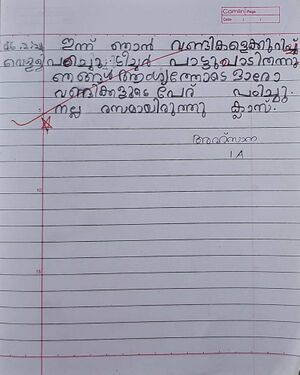 Camlin Page
Date
ഇന്ന് ഞാൻ വണ്ടികളെക്കുറിച്ച്
വെള്ളി പഠിച്ചു. ടീച്ചർ പാട്ടുപാടിതന്നു
ഞങ്ങൾ
വണ്ടികളുടെ പേര് പഠിച്ചു.
നല്ല രസമായിരുന്നു ക്ലാസ്.
1 A